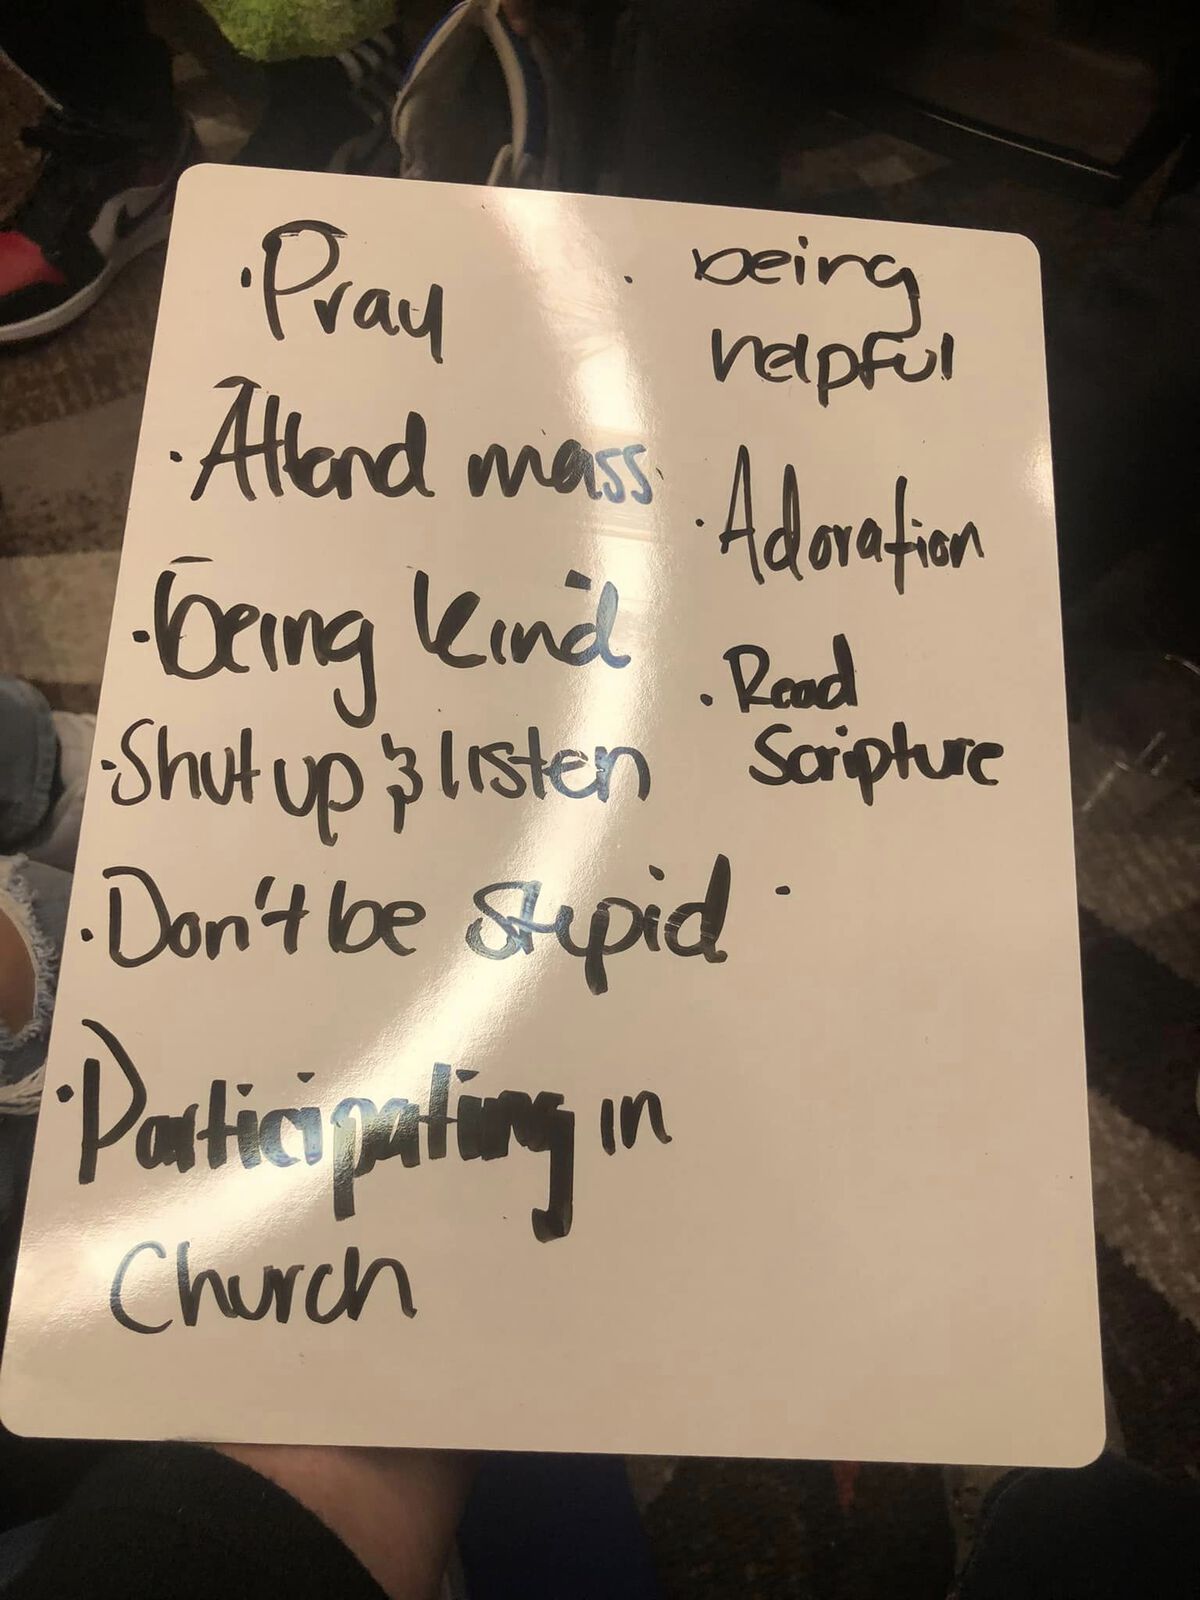 · Pray
· Attend mass
· being kind
· Shut up & listen
· Don't be stupid
· Participating in
Church
· being
helpful
· Adoration
· Read
Scripture
·